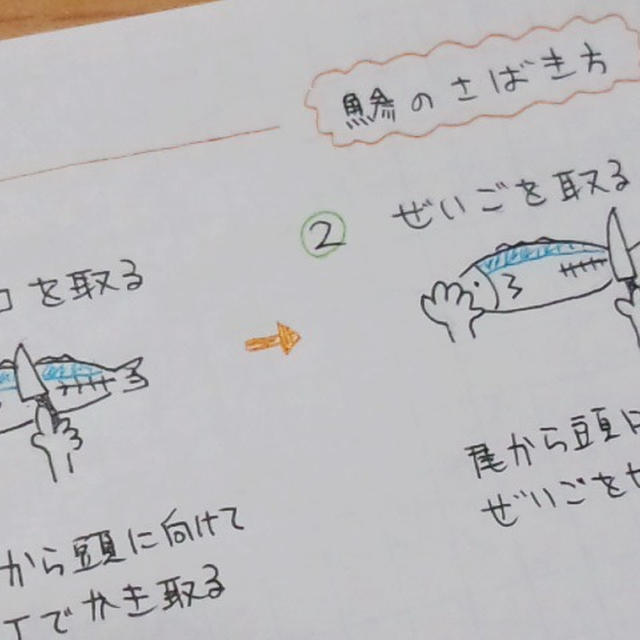 鯵のさばき方
コを取る
から頭に向けて
でかき取る
②
ぜいごを取る
尾から頭に
ぜいごを